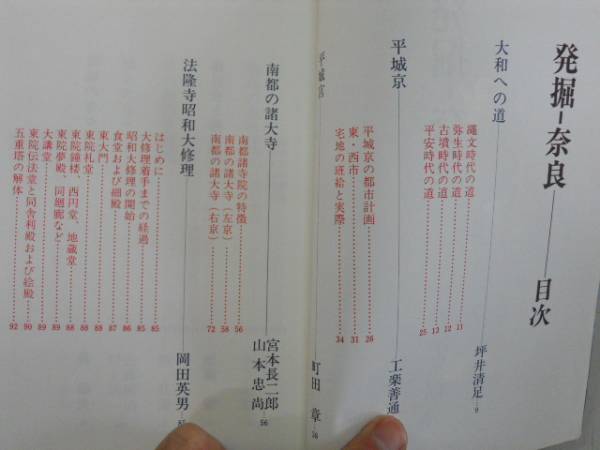 発掘-奈良――目次
大和への道――坪井清足…9
縄文時代の道…11
弥生時代の道…12
古墳時代の道…13
平安時代の道…25
平城京――工楽善通
平城京の都市計画…26
東・西市…31
宅地の班給と実際…34
平城宮――町田 章…36
南都の諸大寺――宮本長二郎 山本忠尚…56
南都諸寺院の特徴…56
南都の諸大寺(左京)…58
南都の諸大寺(右京)…72
法隆寺昭和大修理――岡田英男
はじめに…85
大修理着手までの経過…85
昭和大修理の開始…86
食堂および細殿…87
東大門…89
東院礼堂…88
東院鐘楼、西円堂、地蔵堂…88
東院夢殿、同廻廊など…89
大講堂…89
東院伝法堂と同舎利殿および絵殿…90
五重塔の解体…92